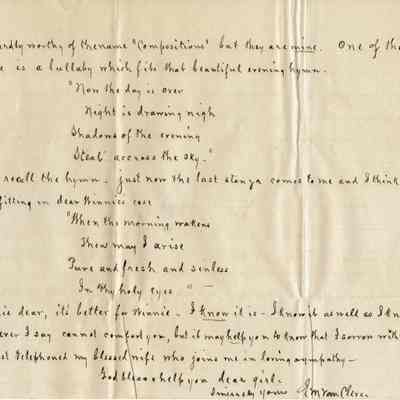 ardly worthy of the name "Compositions" but they are mine. One of the
e is a lullaby which fits that beautiful evening hymn.
"Now the day is over
Night is drawing nigh
Shadows of the evening
Steal accross the sky."
recall the hymn - just now the last stanza comes to me and I think
fitting in dear Winnies case
"When the morning wakens
Then may I arise
Pure and fresh and sinless
In Thy holy eyes" -
ie dear, its better for Winnie - I know it is - I know it as well as I kn
ever I say cannot comfort you, but it may help you to know that I sorrow with
st telephoned my blessed wife who joins me in loving sympathy -
God bless & help you dear girl.
Sincerely yours